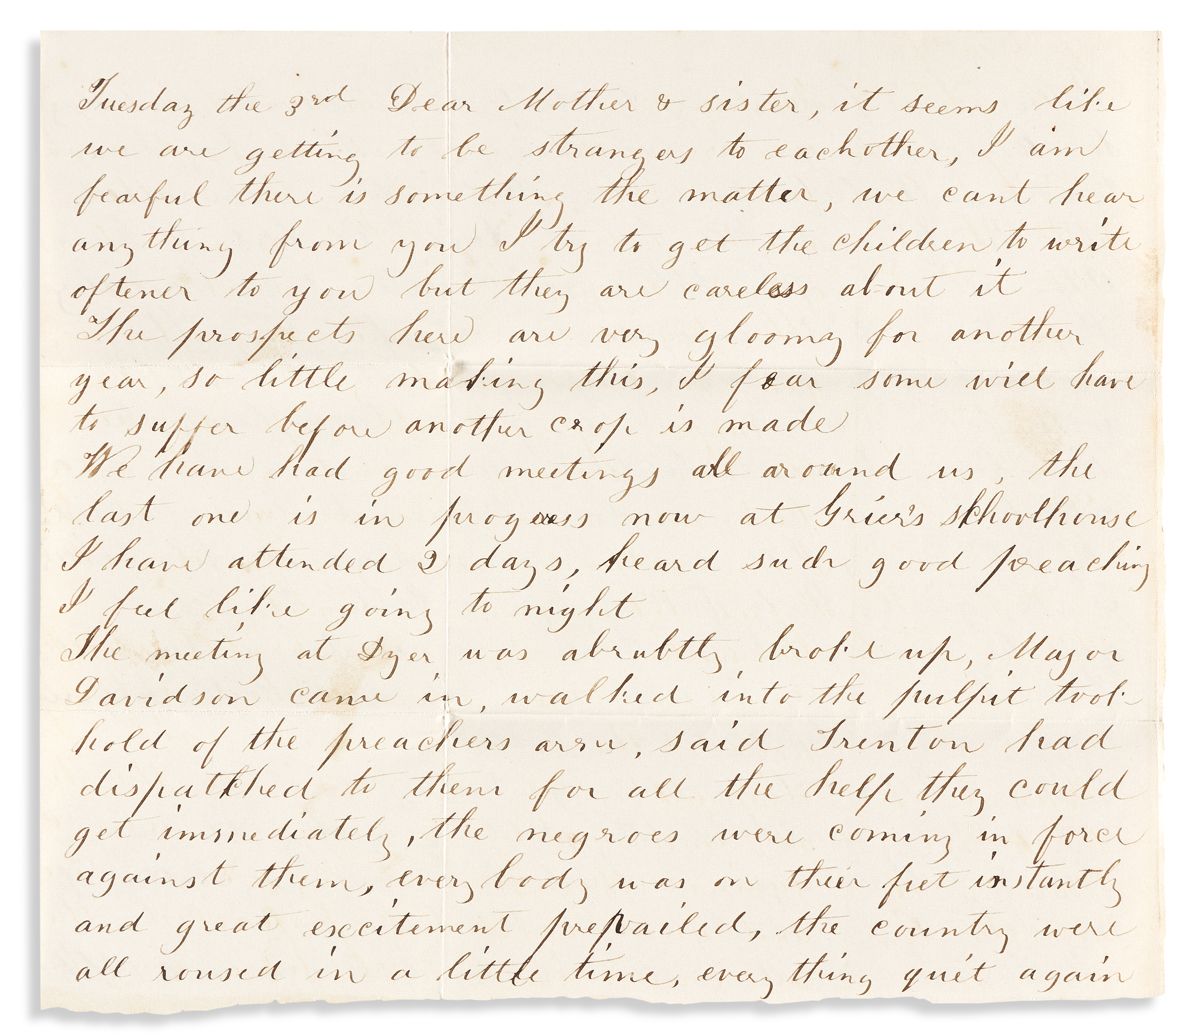 Tuesday the 3rd Dear Mother & sister, it seems like
we are getting to be strangers to eachother, I am
fearful there is something the matter, we cant hear
any thing from you I try to get the children to write
oftener to you but they are careless about it
The prospects here are very gloomy for another
year, so little making this, I fear some will have
to suffer before another crop is made
We have had good meetings all around us, the
last one is in progress now at Grier's schoolhouse
I have attended 2 days, heard such good preaching
I feel like going to night
The meeting at Dyer was abrubtly broke up, Mayor
Davidson came in, walked into the pulpit took
hold of the preachers arm, said Trenton had
dispatched to them for all the help they could
get immediately, the negroes were coming in force
against them, every body was on thier feet instantly
and great excitement prevailed, the country were
all roused in a little time, every thing quiet again